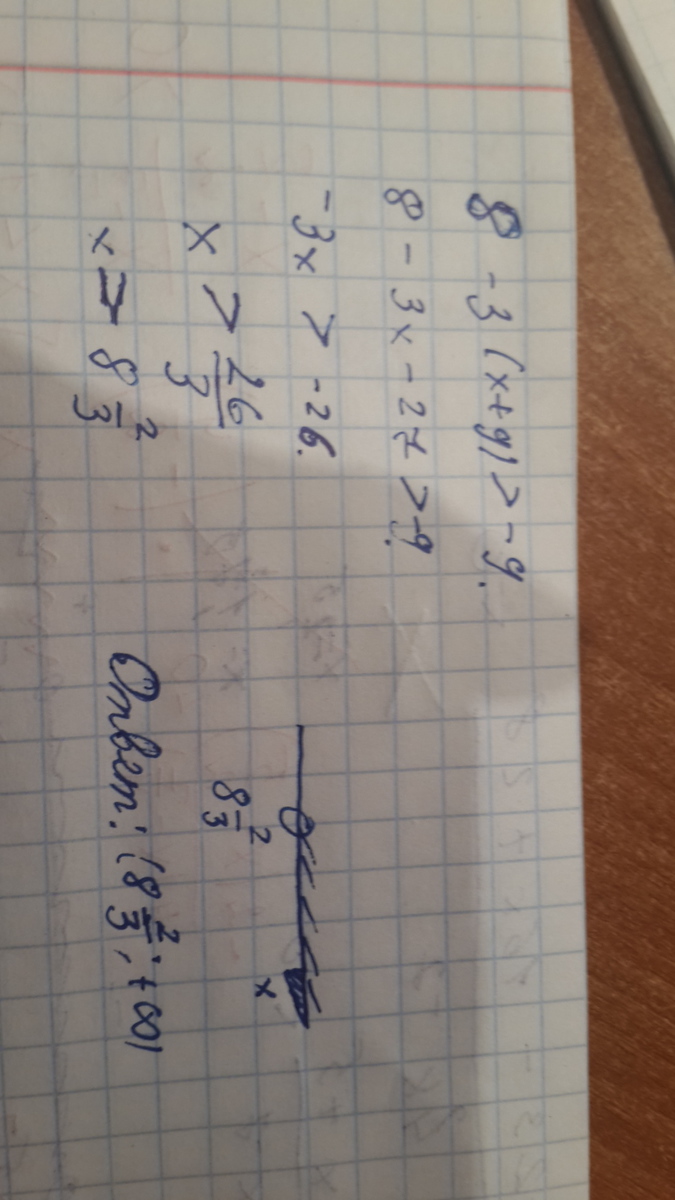 8 - 3(x+9) > -9.
8 - 3x - 27 > -9.
-3x > -26.
x > 26/3
x > 8 2/3
8 2/3
x
Ответ: (8 2/3; +∞)